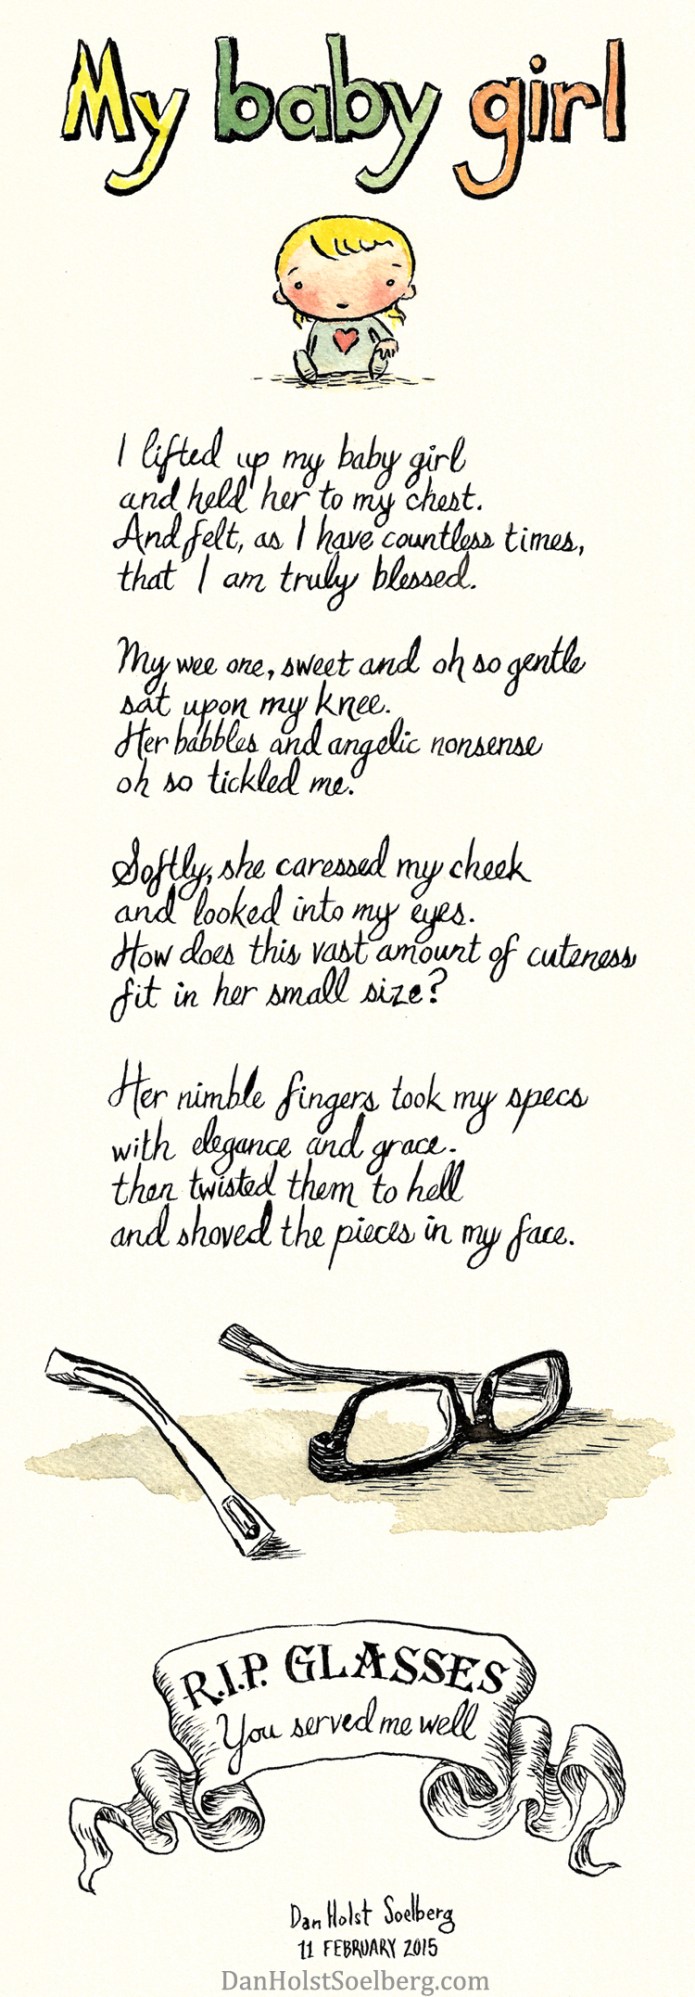 My baby girl
I lifted up my baby girl
and held her to my chest.
And felt, as I have countless times,
that I am truly blessed.
My wee one, sweet and oh so gentle
sat upon my knee.
Her babbles and angelic nonsense
oh so tickled me.
Softly, she caressed my cheek
and looked into my eyes.
How does this vast amount of cuteness
fit in her small size?
Her nimble fingers took my specs
with elegance and grace.
then twisted them to hell
and shoved the pieces in my face.
R.I.P. GLASSES
You served me well
Dan Holst Soelberg
11 FEBRUARY 2015
DanHolstSoelberg.com